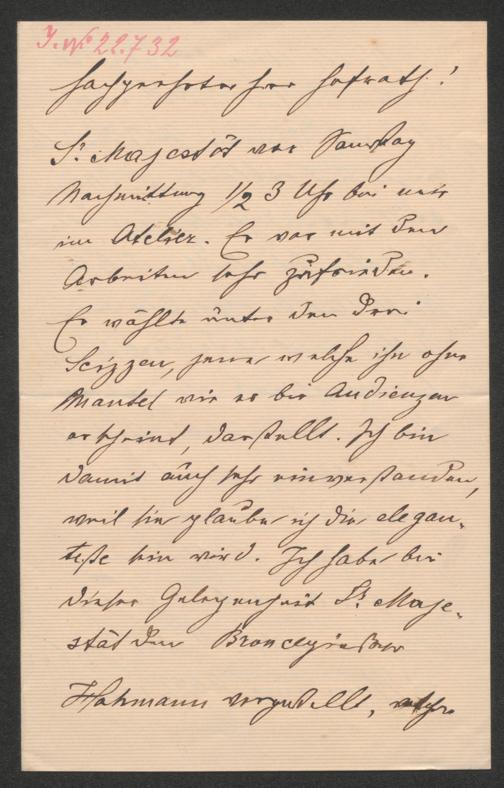 J. No 22.732
Hochgeehrter Herr Hofrath!
Sr Majestät war Samstag
Nachmittag 1/2 3 Uhr bei mir
im Atelier. Er war mit den
Arbeiten sehr zufrieden.
Er wählte unter den drei
Scizzen, jene welche ihn ohne
Mantel wie er bei Audienzen
erscheint, darstellt. Ich bin
damit auch sehr einverstanden,
weil sie glaube ich die elegan-
teste sein wird. Ich habe bei
dieser Gelegenheit Sr Maje-
stät den Broncegießer
Hohmann vorgestellt,